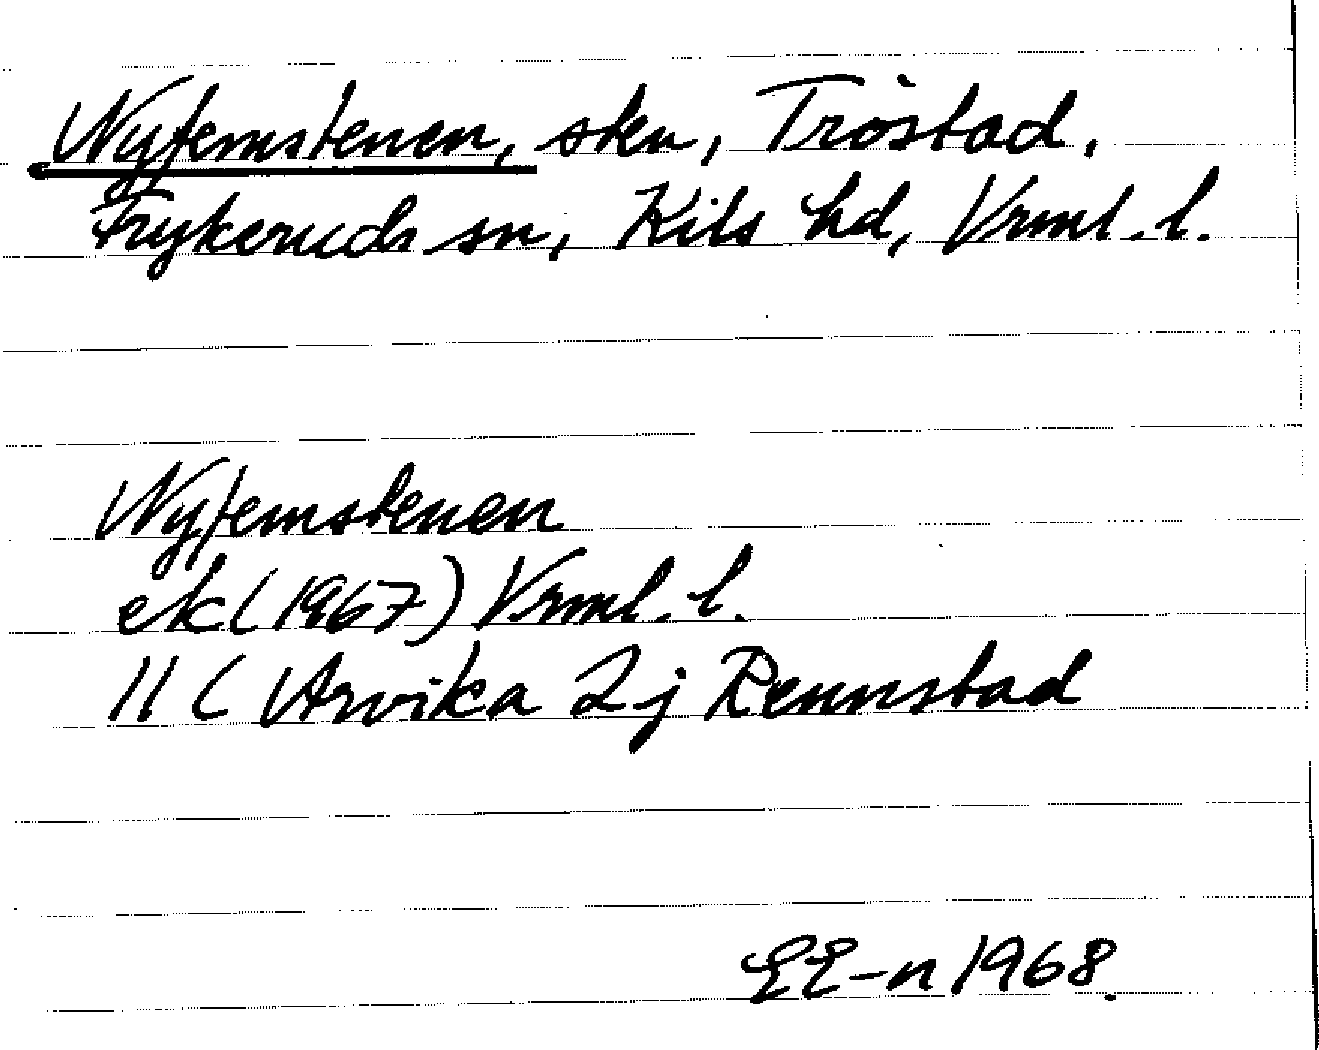 Nyfemstenen, sten, Tröstad,
Frykeruds sn, Kils hd, Vrml. l.
Nyfemstenen
ek (1967) Vrml. l.
11 C Arvika 2j Rennstad
EE-n 1968.